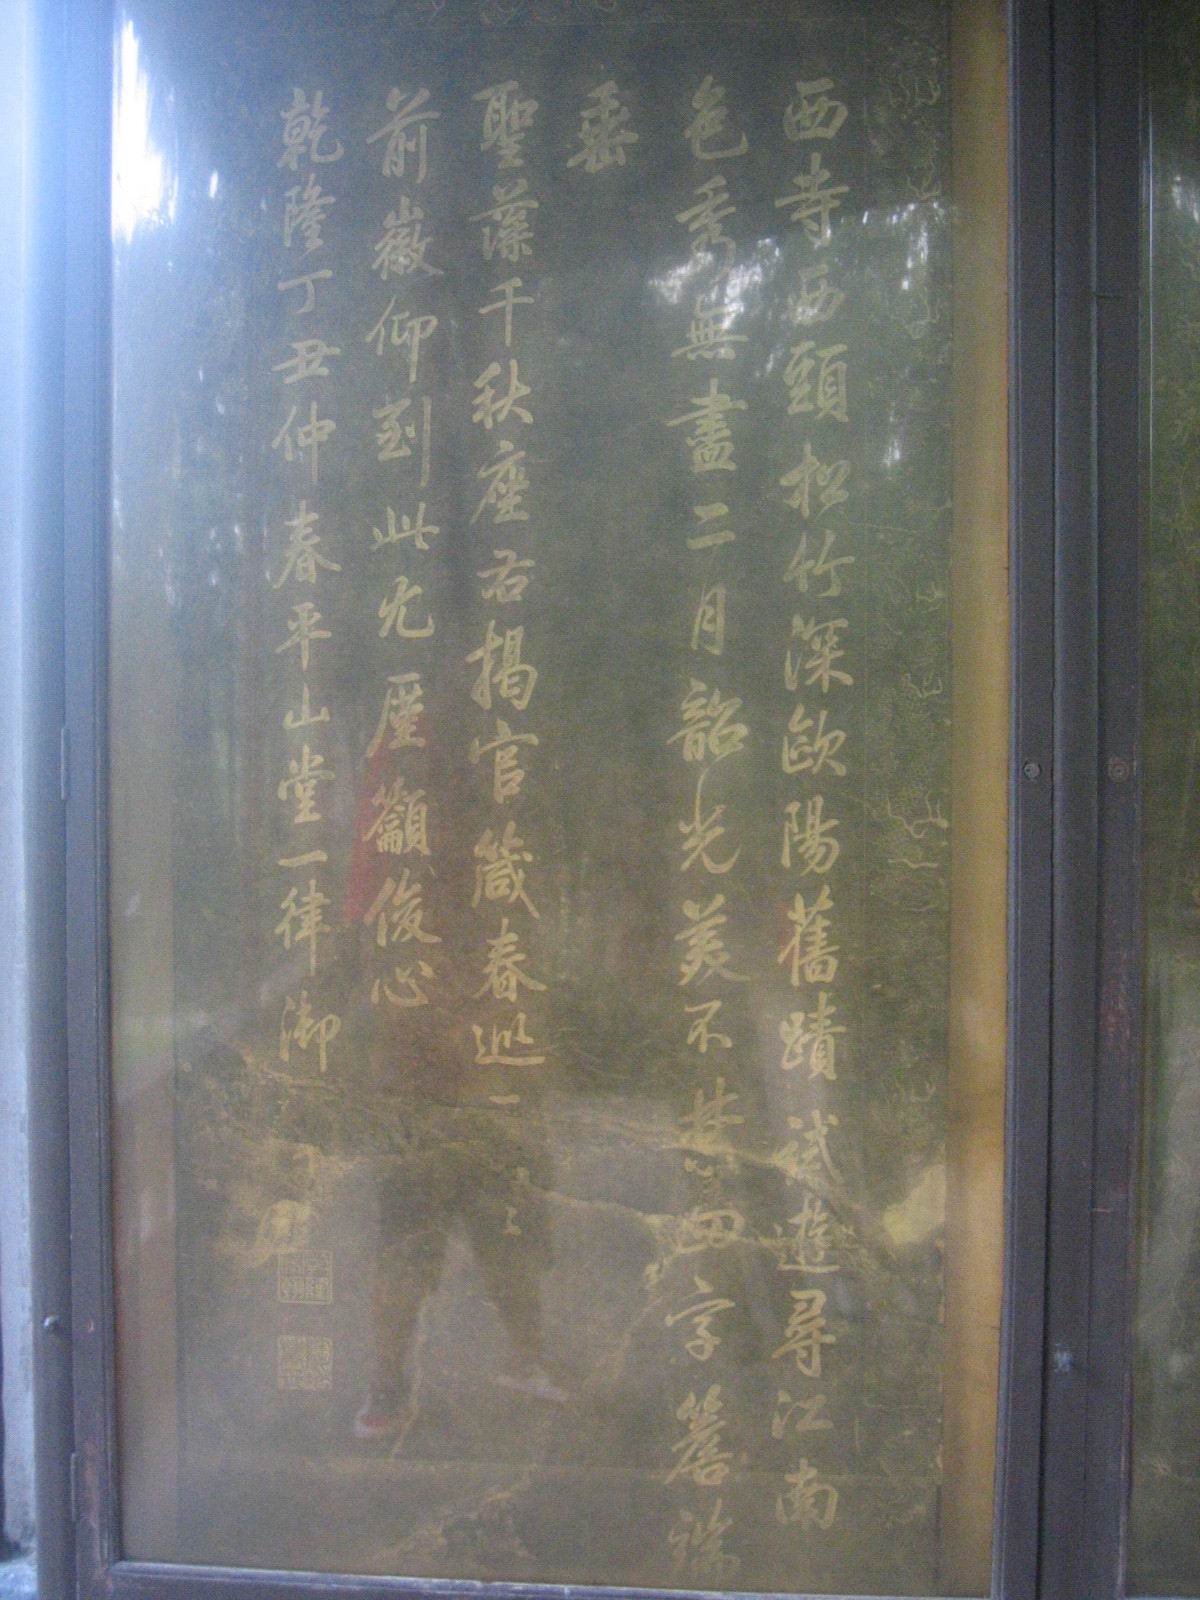 西寺西頭松竹深歐陽舊蹟試遊尋江南
色秀無盡二月韶光美不禁四字簷端
垂
聖藻千秋座右揭官箴春巡一
前徽仰到此尤廑籲俊心
乾隆丁丑仲春平山堂一律御